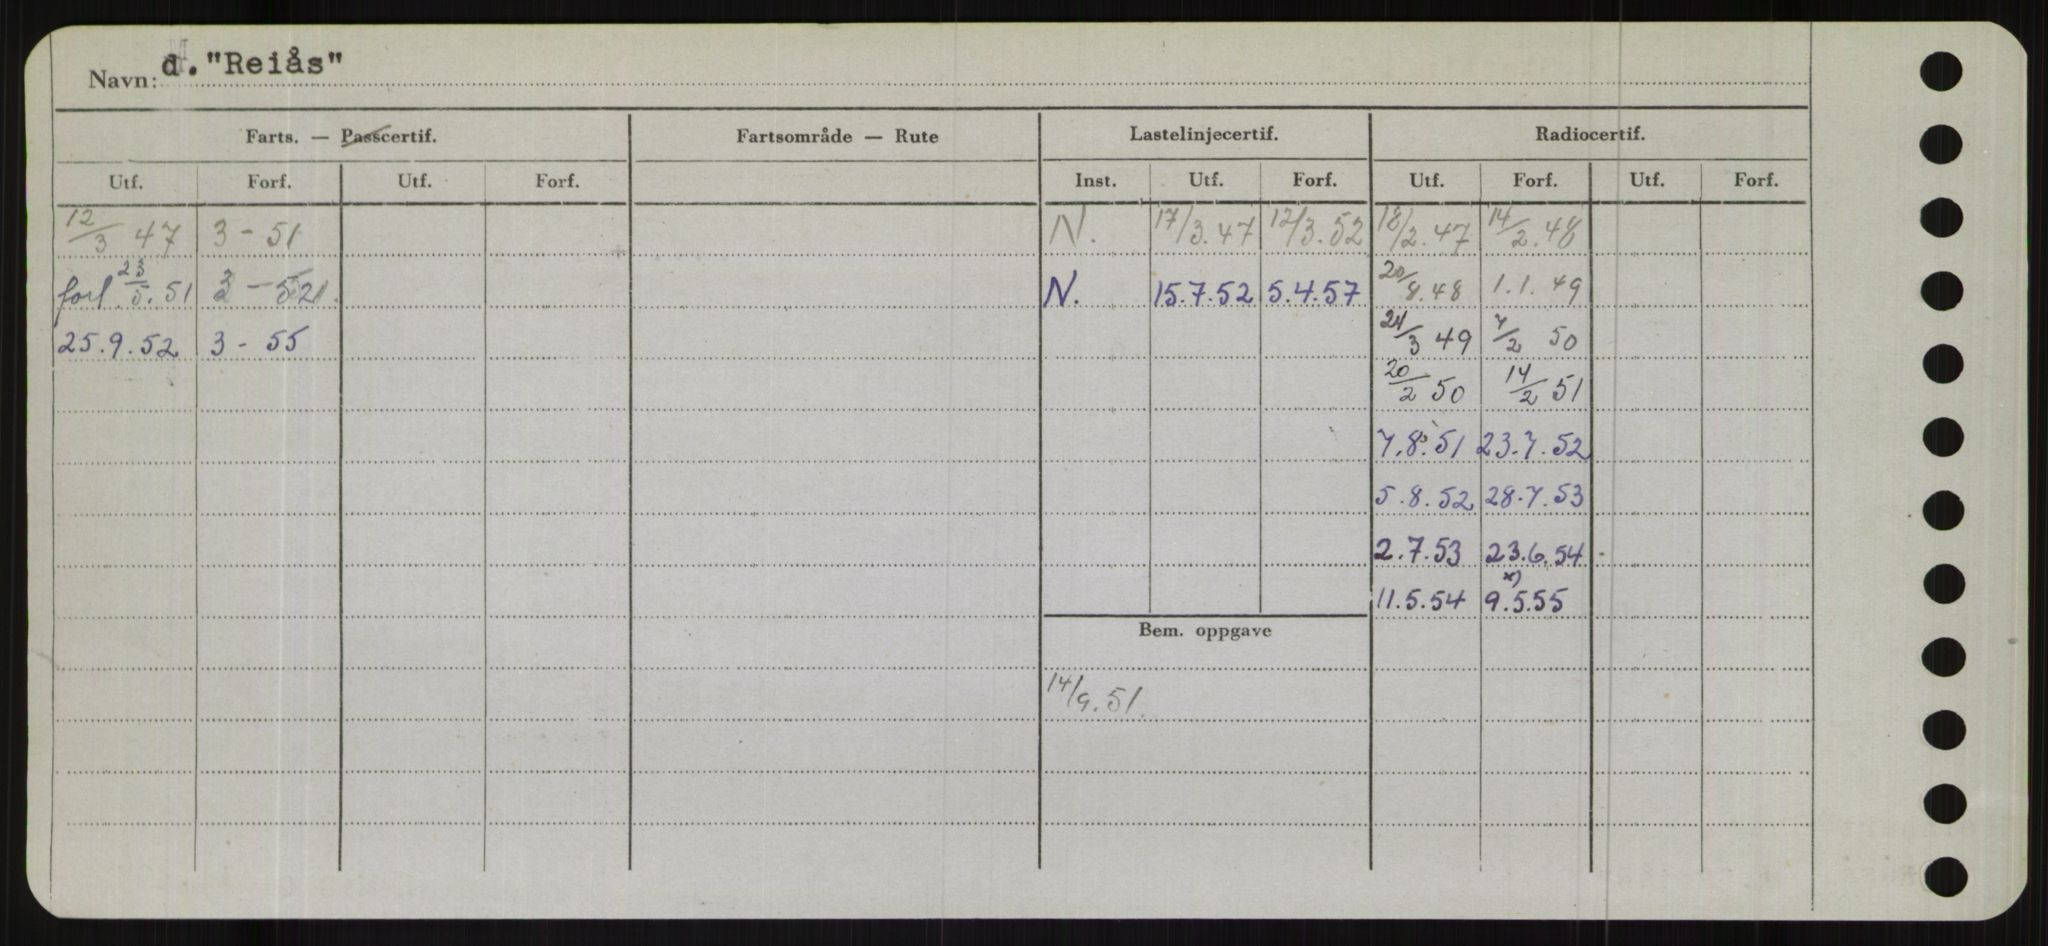 Navn: d. "Reiås"
Farts. — Passcertif. Fartsområde — Rute Lastelinjecertif. Radiocertif.
Utf. Forf. Utf. Forf. Inst. Utf. Forf. Utf. Forf. Utf. Forf.
12/3 47 3 - 51 N. 17/3.47 12/3.52 18/2.47 14/2.48
forl. 23/5.51 3 - 52 N. 15.7.52 5.4.57 20/8.48 1.1.49
25.9.52 3 - 55 24/3 49 7/2 50
20/2 50 14/2 51
7.8.51 23.7.52
5.8.52 28.7.53
2.7.53 23.6.54
11.5.54 9.5.55 x)
Bem. oppgave
14/9.51.